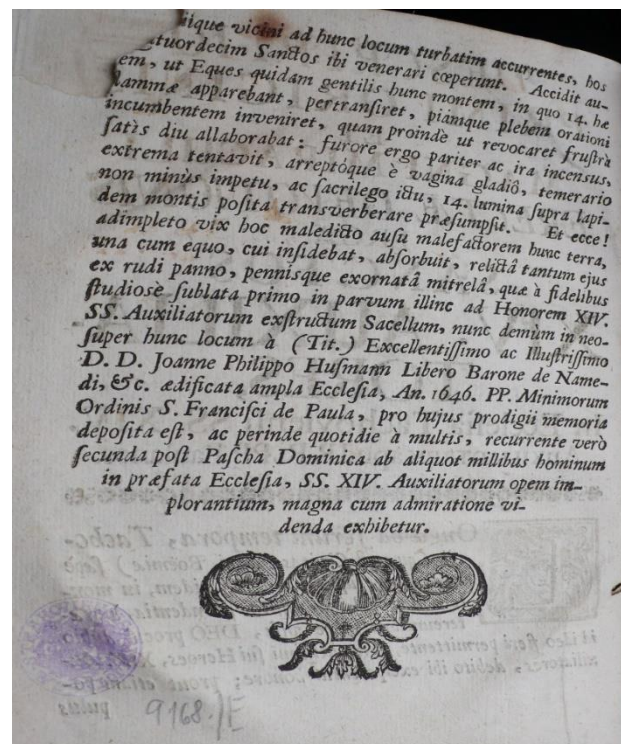 iique vicini ad hunc locum turbatim accurrentes, hos
tuordecim Sanctos ibi venerari cœperunt. Accidit au-
em, ut Eques quidam gentilis hunc montem, in quo 14. hæ
lammæ apparebant, pertransiret, piamque plebem orationi
incumbentem inveniret, quam proindè ut revocaret frustrà
satis diu allaborabat: furore ergo pariter ac ira incensus,
extrema tentavit, arreptóque è vagina gladiô, temerario
non minùs impetu, ac sacrilego ictu, 14. lumina supra lapi-
dem montis posita transverberare præsumpsit. Et ecce!
adimpleto vix hoc maledicto ausu malefactorem hunc terra,
una cum equo, cui insidebat, absorbuit, relictâ tantum ejus
ex rudi panno, pennisque exornatâ mitrelâ, quæ à fidelibus
studiosè sublata primo in parvum illinc ad Honorem XIV.
SS. Auxiliatorum exstructum Sacellum, nunc demùm in neo-
super hunc locum à (Tit.) Excellentissimo ac Illustrissimo
D. D. Joanne Philippo Husmann Libero Barone de Name-
di, &c. ædificata ampla Ecclesia, An. 1646. PP. Minimorum
Ordinis S. Francisci de Paula, pro hujus prodigii memoria
deposita est, ac perinde quotidie à multis, recurrente verò
secunda post Pascha Dominica ab aliquot millibus hominum
in præfata Ecclesia, SS. XIV. Auxiliatorum opem im-
plorantium, magna cum admiratione vi-
denda exhibetur.
9168./E